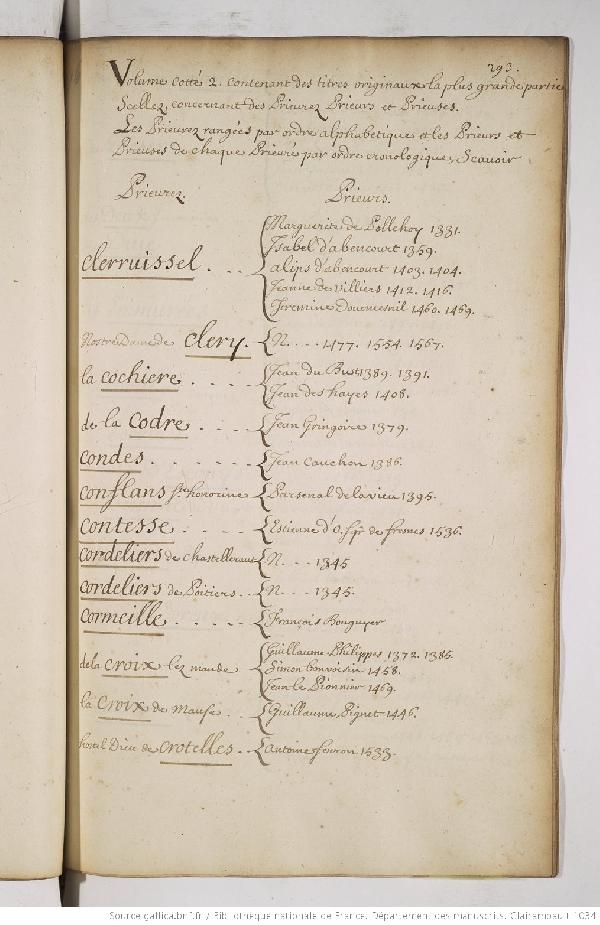 293.
Volume cotté 2. contenant des titres originaux la plus grande partie
Scellez, concernant des Prieurez Prieurs et Prieuses.
Les Prieurez rangées par ordre alphabetique et les Prieurs et
Prieuses de chaque Prieuré par ordre cronologique, Scauoir
Prieurez. Prieurs.
Clerruissel. Marguerite de Pollehoy 1331.
Isabel d'abencourt 1359.
alips d'abencourt 1403. 1404.
Jeanne de Villiers 1412. 1416.
Jeremine 1460. 1469.
Nostre Dame de Clery. N. .... 1477. 1554. 1567.
la Cochiere Jean du Bust 1389. 1391.
Jean des hayes 1408.
de la Codre Jean Gringoire 1379.
Condes. Jean Cauchon 1386.
Conflans Ste honorine Parsenal de la vieu 1395.
Contesse Estienne d'O. sgr de fresnes 1536.
Cordeliers de Chastelleraut N. ... 1345
Cordeliers de Poitiers N. ... 1345.
Cormeille François Bouguyer
de la Croix lez maude Guillaume Philippes 1372. 1385.
Simon 1458.
Jean le Pionnier 1469.
la Croix de Mause Guillaume Pignet 1446.
hostel Dieu de Crotelles antoine 1533.
Source gallica.bnf.fr / Bibliothèque nationale de France. Département des manuscrits. Clairambault 1034